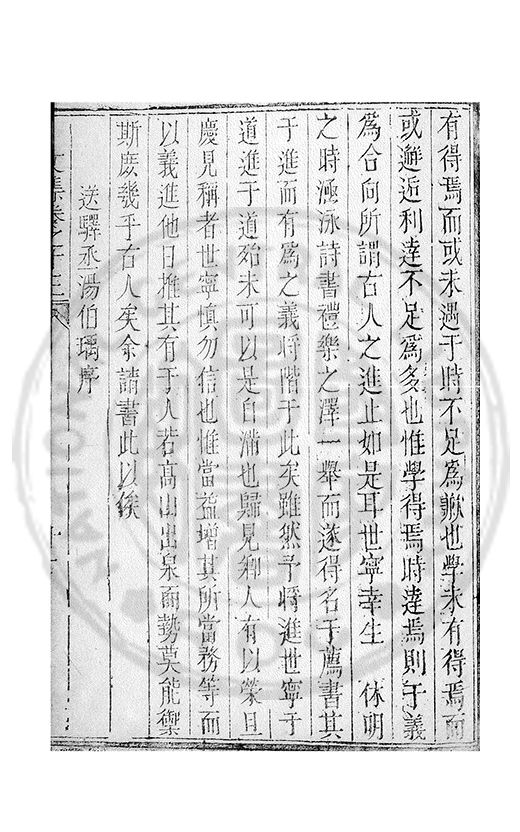 有得焉而或未遇于時不足為歉也學未有得焉而
或邂近利達不足為多也惟學得焉時達焉則于義
為合向所謂古人之進止如是耳世寧幸生 休明
之時涵泳詩書禮樂之澤一舉而遂得名于薦書其
于進而有為之義將階于此矣雖然予將進世寧于
道進于道殆未可以是自滿也歸見鄉人有以榮且
慶見稱者世寧慎勿信也惟當益增其所當務等而
以義進他日推其有于人若高山出泉而勢莫能禦
斯庶幾乎古人矣余請書此以俟
送驛丞湯伯瑀序
文集卷之十三